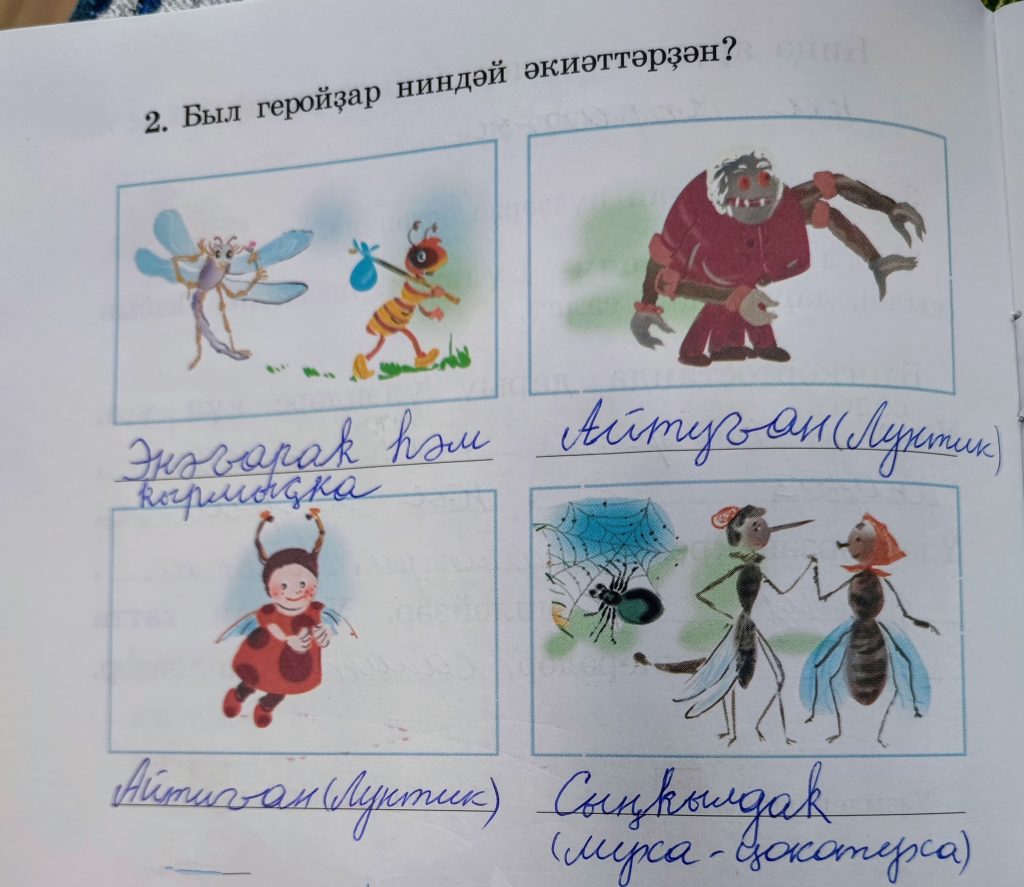 2. Был геройҙар ниндәй әкиәттәрҙән?
Энәғарак һәм
кырмыҫка
Айтуған (Лунтик)
Айтиған (Лунтик)
Сыңкылдак
(муха - цокатуха)